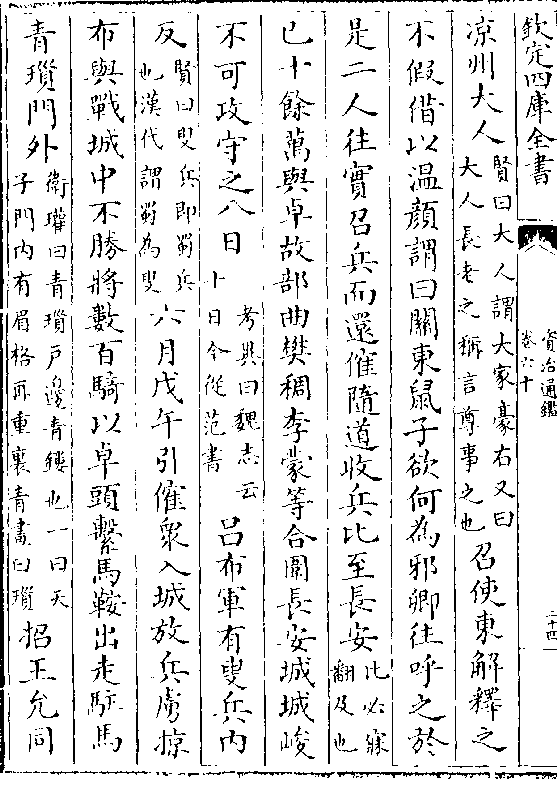 欽定四庫全書
資治通鑑
卷六十
二十四
凉州大人賢曰大人謂大家豪右又曰大人長老之稱言尊事之也召使東解釋之
不假借以温顔謂曰關東鼠子欲何為邪卿往呼之於
是二人往實召兵而還傕隨道收兵比至長安比必寐翻及也
已十餘萬與卓故部曲樊稠李蒙等合圍長安城城峻
不可攻守之八日考異曰魏志云十日今從范書吕布軍有叟兵内
反賢曰叟兵即蜀兵也漢代謂蜀為叟六月戊午引傕衆入城放兵虜掠
布與戰城中不勝將數百騎以卓頭繫馬鞍出走駐馬
青瑣門外衛瓘曰青瑣戸邊青鏤也一曰天子門内有眉格再重裏青畫曰瑣招王允同